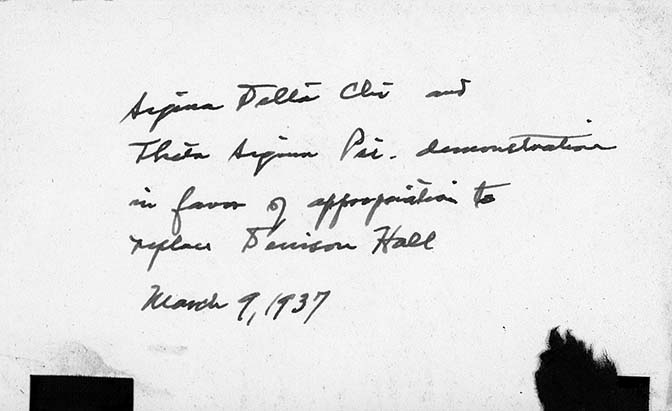 Sigma Delta Chi and
Theta Sigma Phi. demonstration
in favor of appropriation to
replace Denison Hall
March 9, 1937